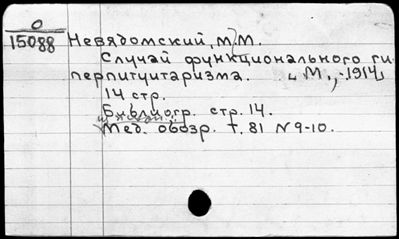 0
15088 Невядомский, М. М.
Случай функционального ги-
перпитуитаризма. М., 1914,
14 стр.
Библиогр. стр. 14.
Мед. обозр. т. 81 N 9-10.